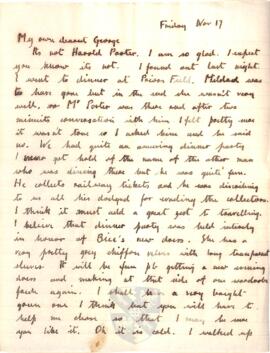 Friday Nov 17
My own dearest George
Its not Harold Porter. I am so glad. I expect
you know its not. I found out last night.
I went to dinner at Priors Field. Mildred was
to have gone but in the end she wasn't very
well, so Mr Porter was there and after two
minutes conversation with him I felt pretty sure
it wasn't true so I asked him and he said
no. We had quite an amusing dinner party
I never get hold of the name of the other man
who was dining there but he was quite fun.
He collects railway tickets and he was describing
to us all his dodges for evading the collectors.
I think it must add a great zest to travelling.
I believe that dinner party was held entirely
in honour of Bice's new dress. She has a
very pretty grey chiffon with long transparent
sleeves. It will be fun getting a new evening
dress and making that side of our wardrobe
fresh again. I shall have a very bright
green one I think but you will have to
help me choose so that I may be sure
you like it. Oh it is cold. I walked up